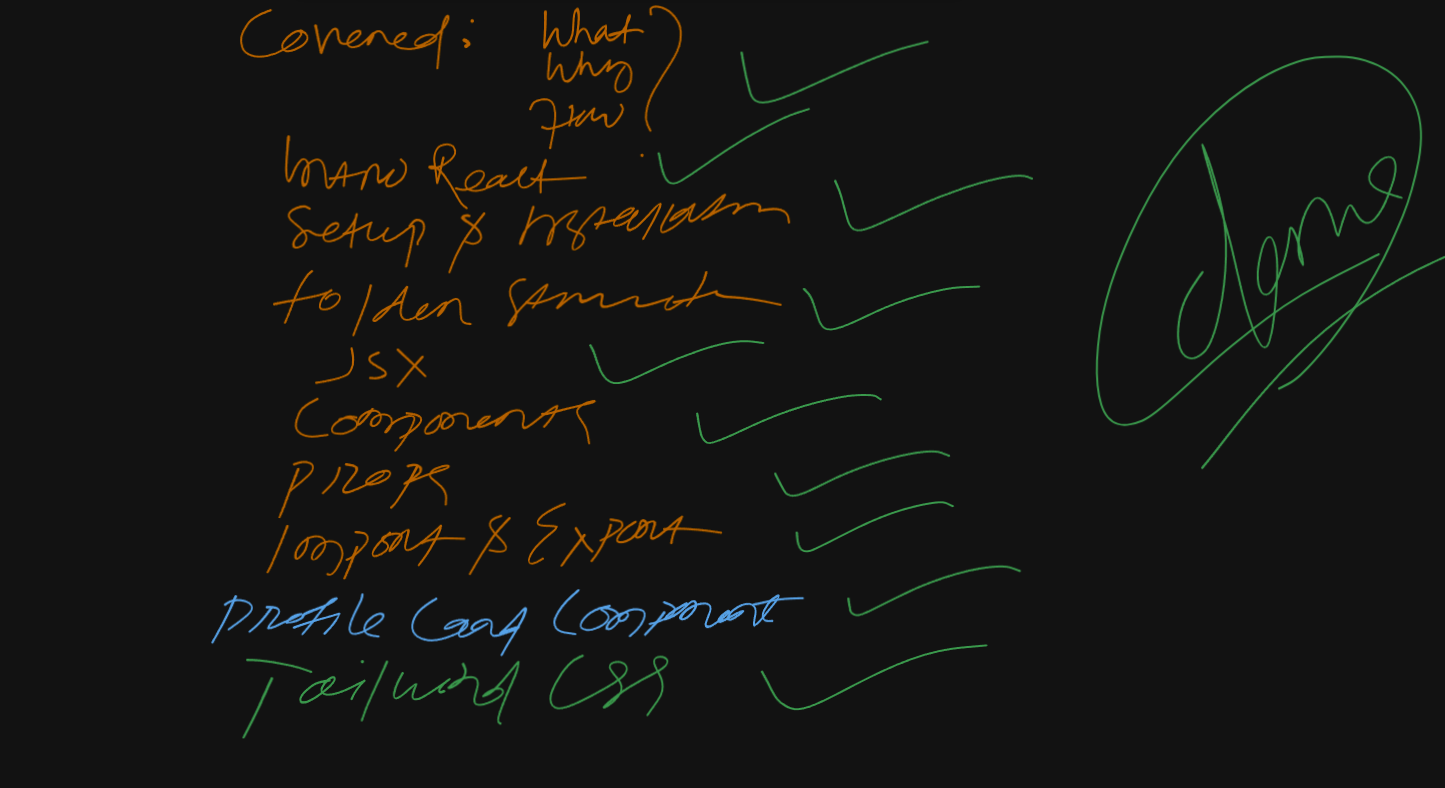 Covered: What
Why
How
Intro React
Setup & Installation
folder Structure
JSX
Components
Props
Import & Export
Profile Card Component
Tailwind CSS